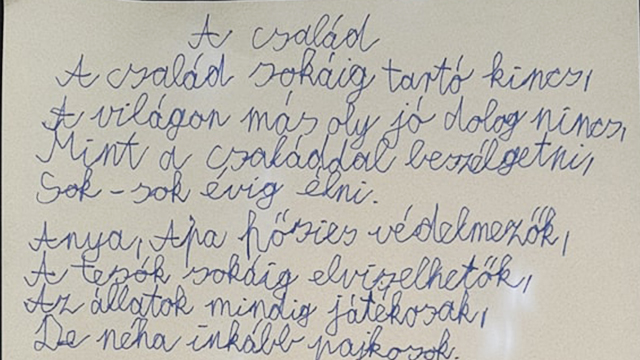 A család
A család sokáig tartó kincs,
A világon más oly jó dolog nincs,
Mint a családdal beszélgetni,
Sok-sok évig élni.
Anya, Apa hősies védelmezők,
A tesók sokáig elviselhetők,
Az állatok mindig játékosak,
De néha inkább pajkosok.